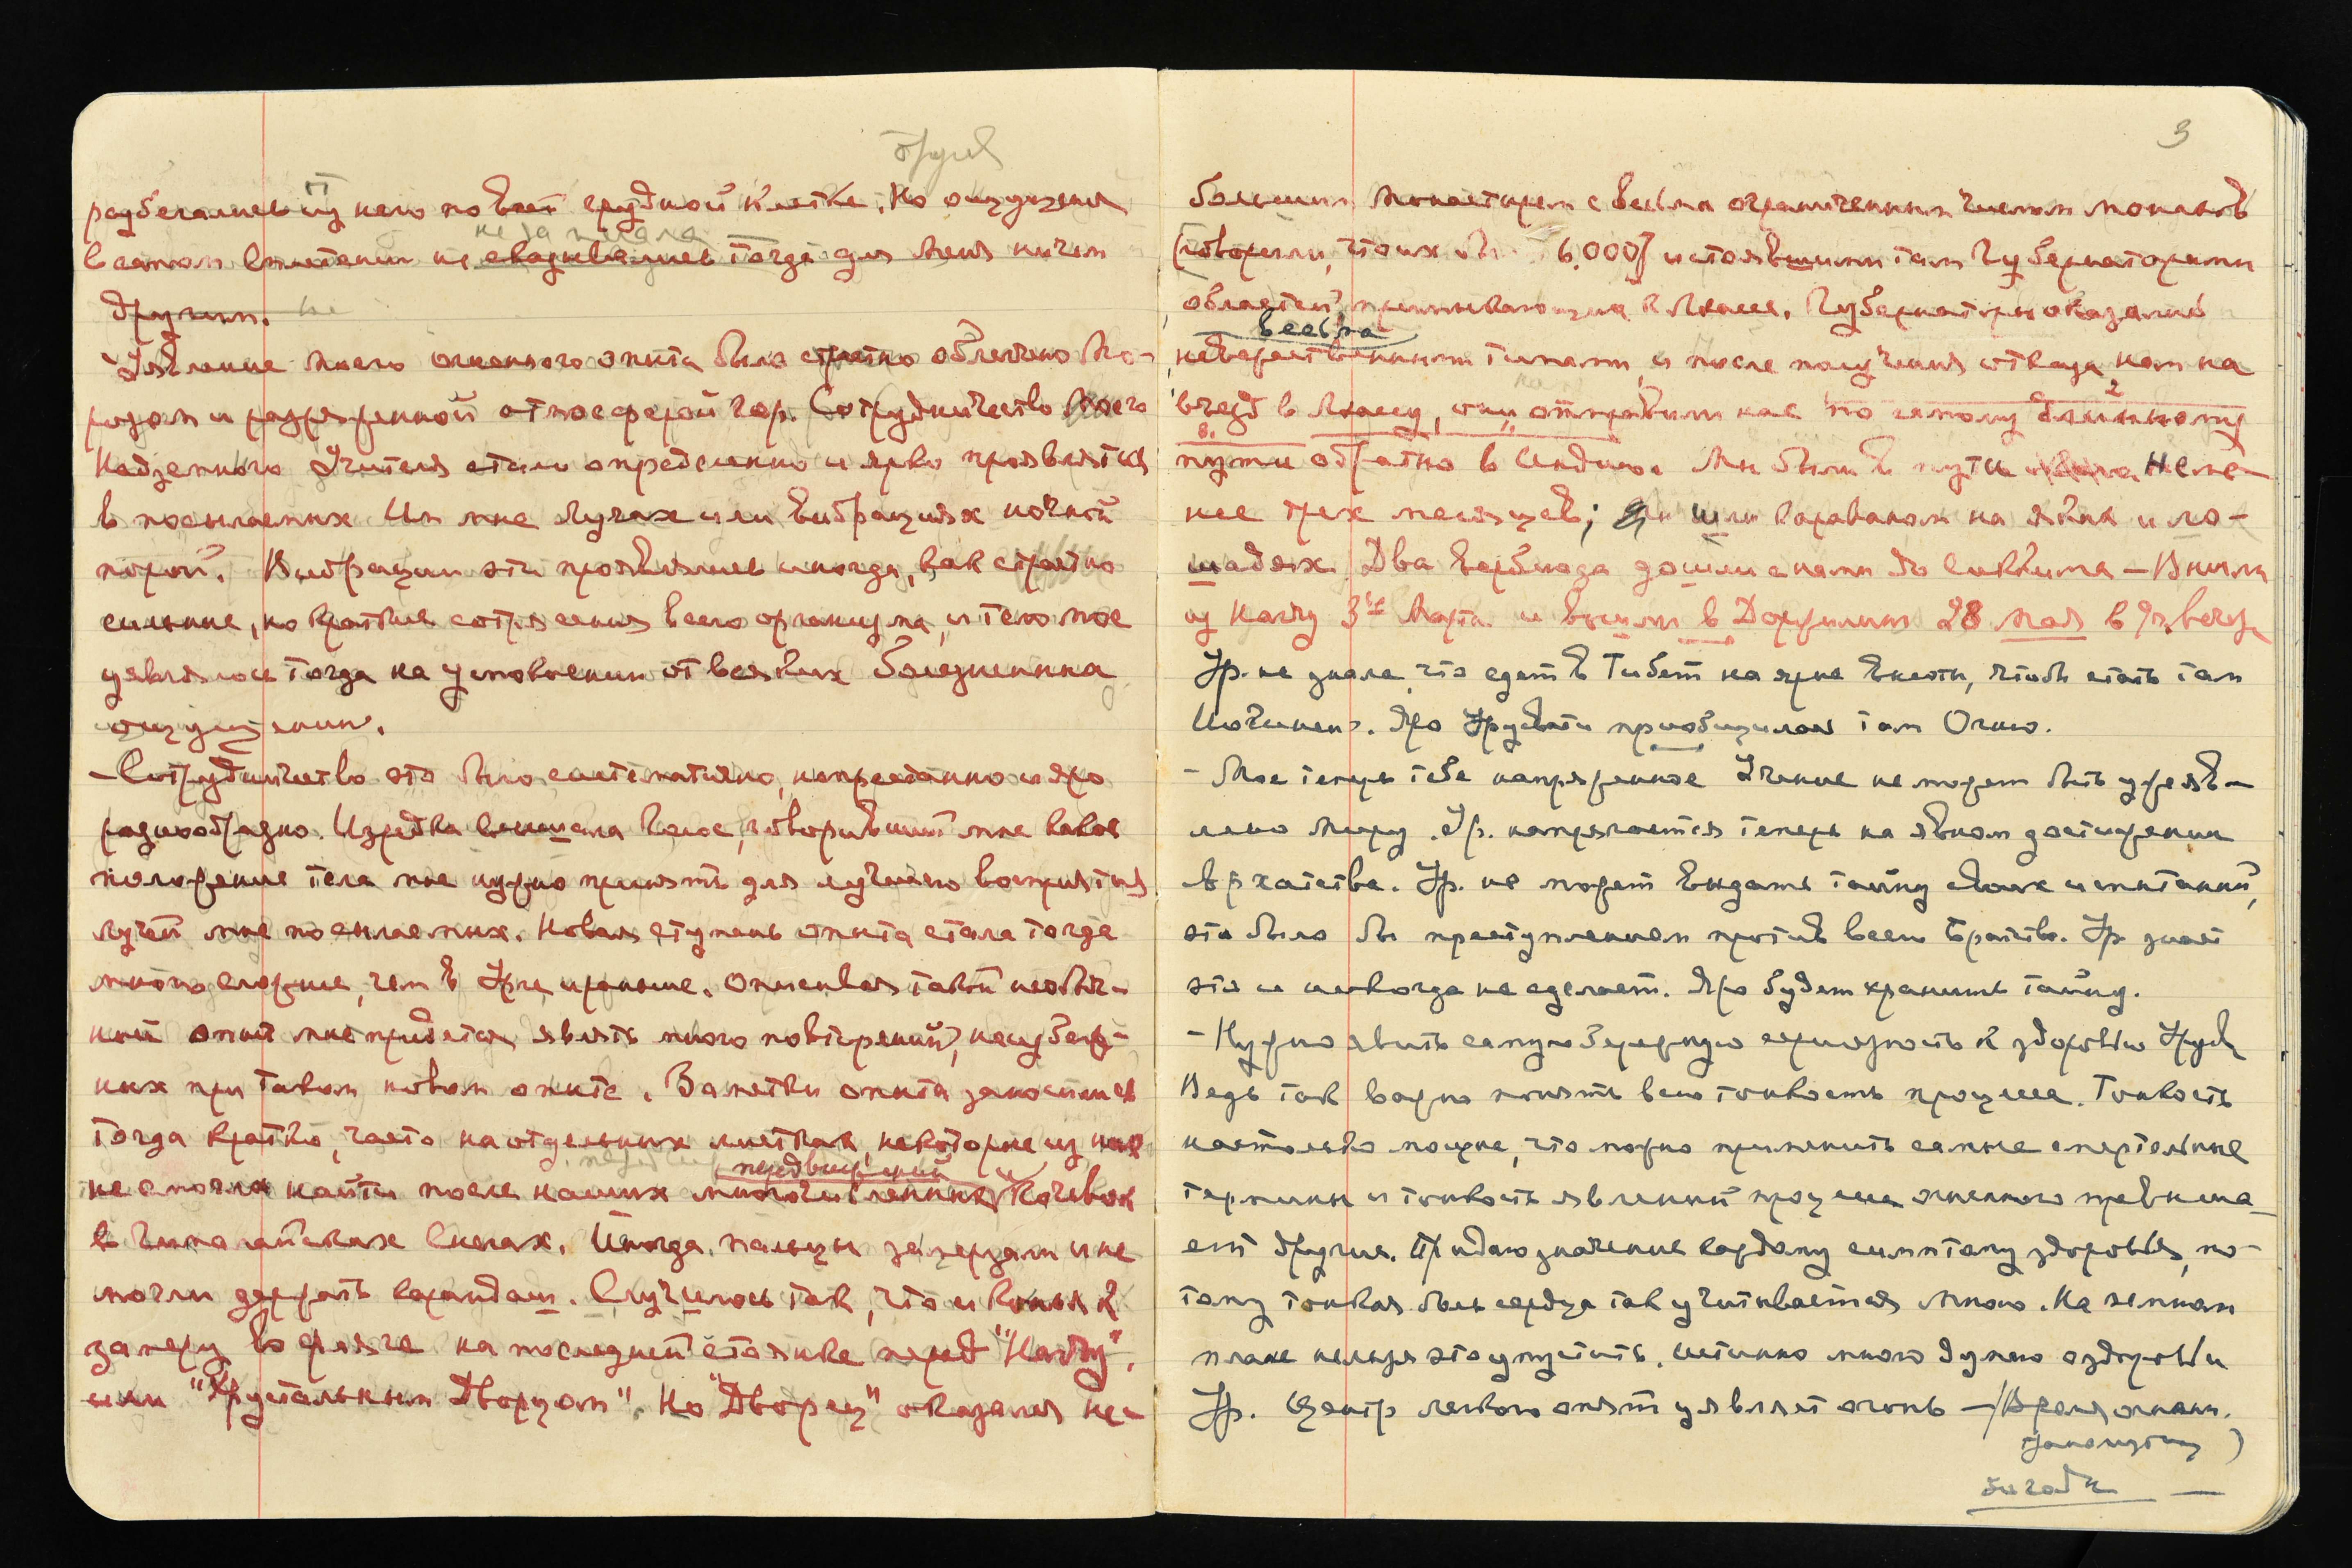 разбегались из него по всей грудной клетке. Но ощущения
не за
в самом сплетении не сводились тогда для меня ничем
другим.
Явление моего огненного опыта было страшно облегчено Мо-
розом и разряженной атмосферой гор. Сотрудничество Моего
Надземного Учителя стали определенно и ярко проявляться
в посылаемых Им мне Лучах или Вибрациях ночной
порой. Вибрации эти проявлялись иногда, как страшно
сильные, но краткие сотрясения всего организма, и тело мое
являлось тогда на успокоении от всяких болезненных
ощущений.
— Сотрудничество это было систематично, непрестанно и яро
разнообразно. Изредка слышала Голос, говоривший мне какое
положение тела мне нужно принять для лучшего восприятия
лучей мне посылаемых. Новая ступень опыта стала тогда
много сложнее, чем в Уре прошлые. Описывая такой необыч-
ный опыт мне придется явить много повторений, неизбеж-
ных при таком новом опыте. Заметки опыта заносились
тогда кратко, часто на отдельных листках, некоторые из них
передвижений и
не смогла найти после наших многочисленных кочевок
в Гималайских снегах. Иногда пальцы замерзали и не
могли держать карандаш. Случилось так, что и коньяк
замерз во фляге на последней стоянке перед "Нагчу",
или "Хрустальным Дворцом". Но "Дворец" оказался не-
3
большим монастырем с весьма ограниченным числом монахов
[говорили, что их 6.000] и стоявшими там Губернаторами
областей, примыкающих к Лхассе. Губернаторы оказались
весьма
невежественными типами, и после получения отказа нам на
въезд в Лхассу, они отправили нас по самому длинному
пути обратно в Индию. Мы были в пути не ме-
нее трех месяцев; шли караваном на яках и ло-
шадях. Два верблюда дошли с нами до Сиккима — Вышли
из Нагчу 3го Марта и вошли в Дарджилинг 28 мая в 9 ч. вечера
Ур. не знала, что едет в Тибет на ярые высоты, чтобы стать там
Йогинею. Яро Урусвати приобщилась там Огню.
- Мое теперь тебе напряженное Учение не может быть уявл-
лено миру. Ур. напрягается теперь на явном достижении
Архатства. Ур. не может выдать тайну своих испытаний,
это было бы преступлением против всего Братства. Ур. знает
это и никогда не сделает. Яро будет хранить тайну.
- Нужно явить самую бережную серьезность к здоровью Урусв
Ведь так важно понять всю тонкость процесса. Тонкость
настолько мощна, что можно применить самые смертельные
термины и тонкость явлений процесса огненного превыша-
ет другие. Придаю значение каждому симптому здоровья, по-
тому тонкая боль сердца так учитывается Мною. На земном
плане нельзя это упустить. Истинно много думаю о здоровье
Ур. Центр легкого опять уявляет огонь —